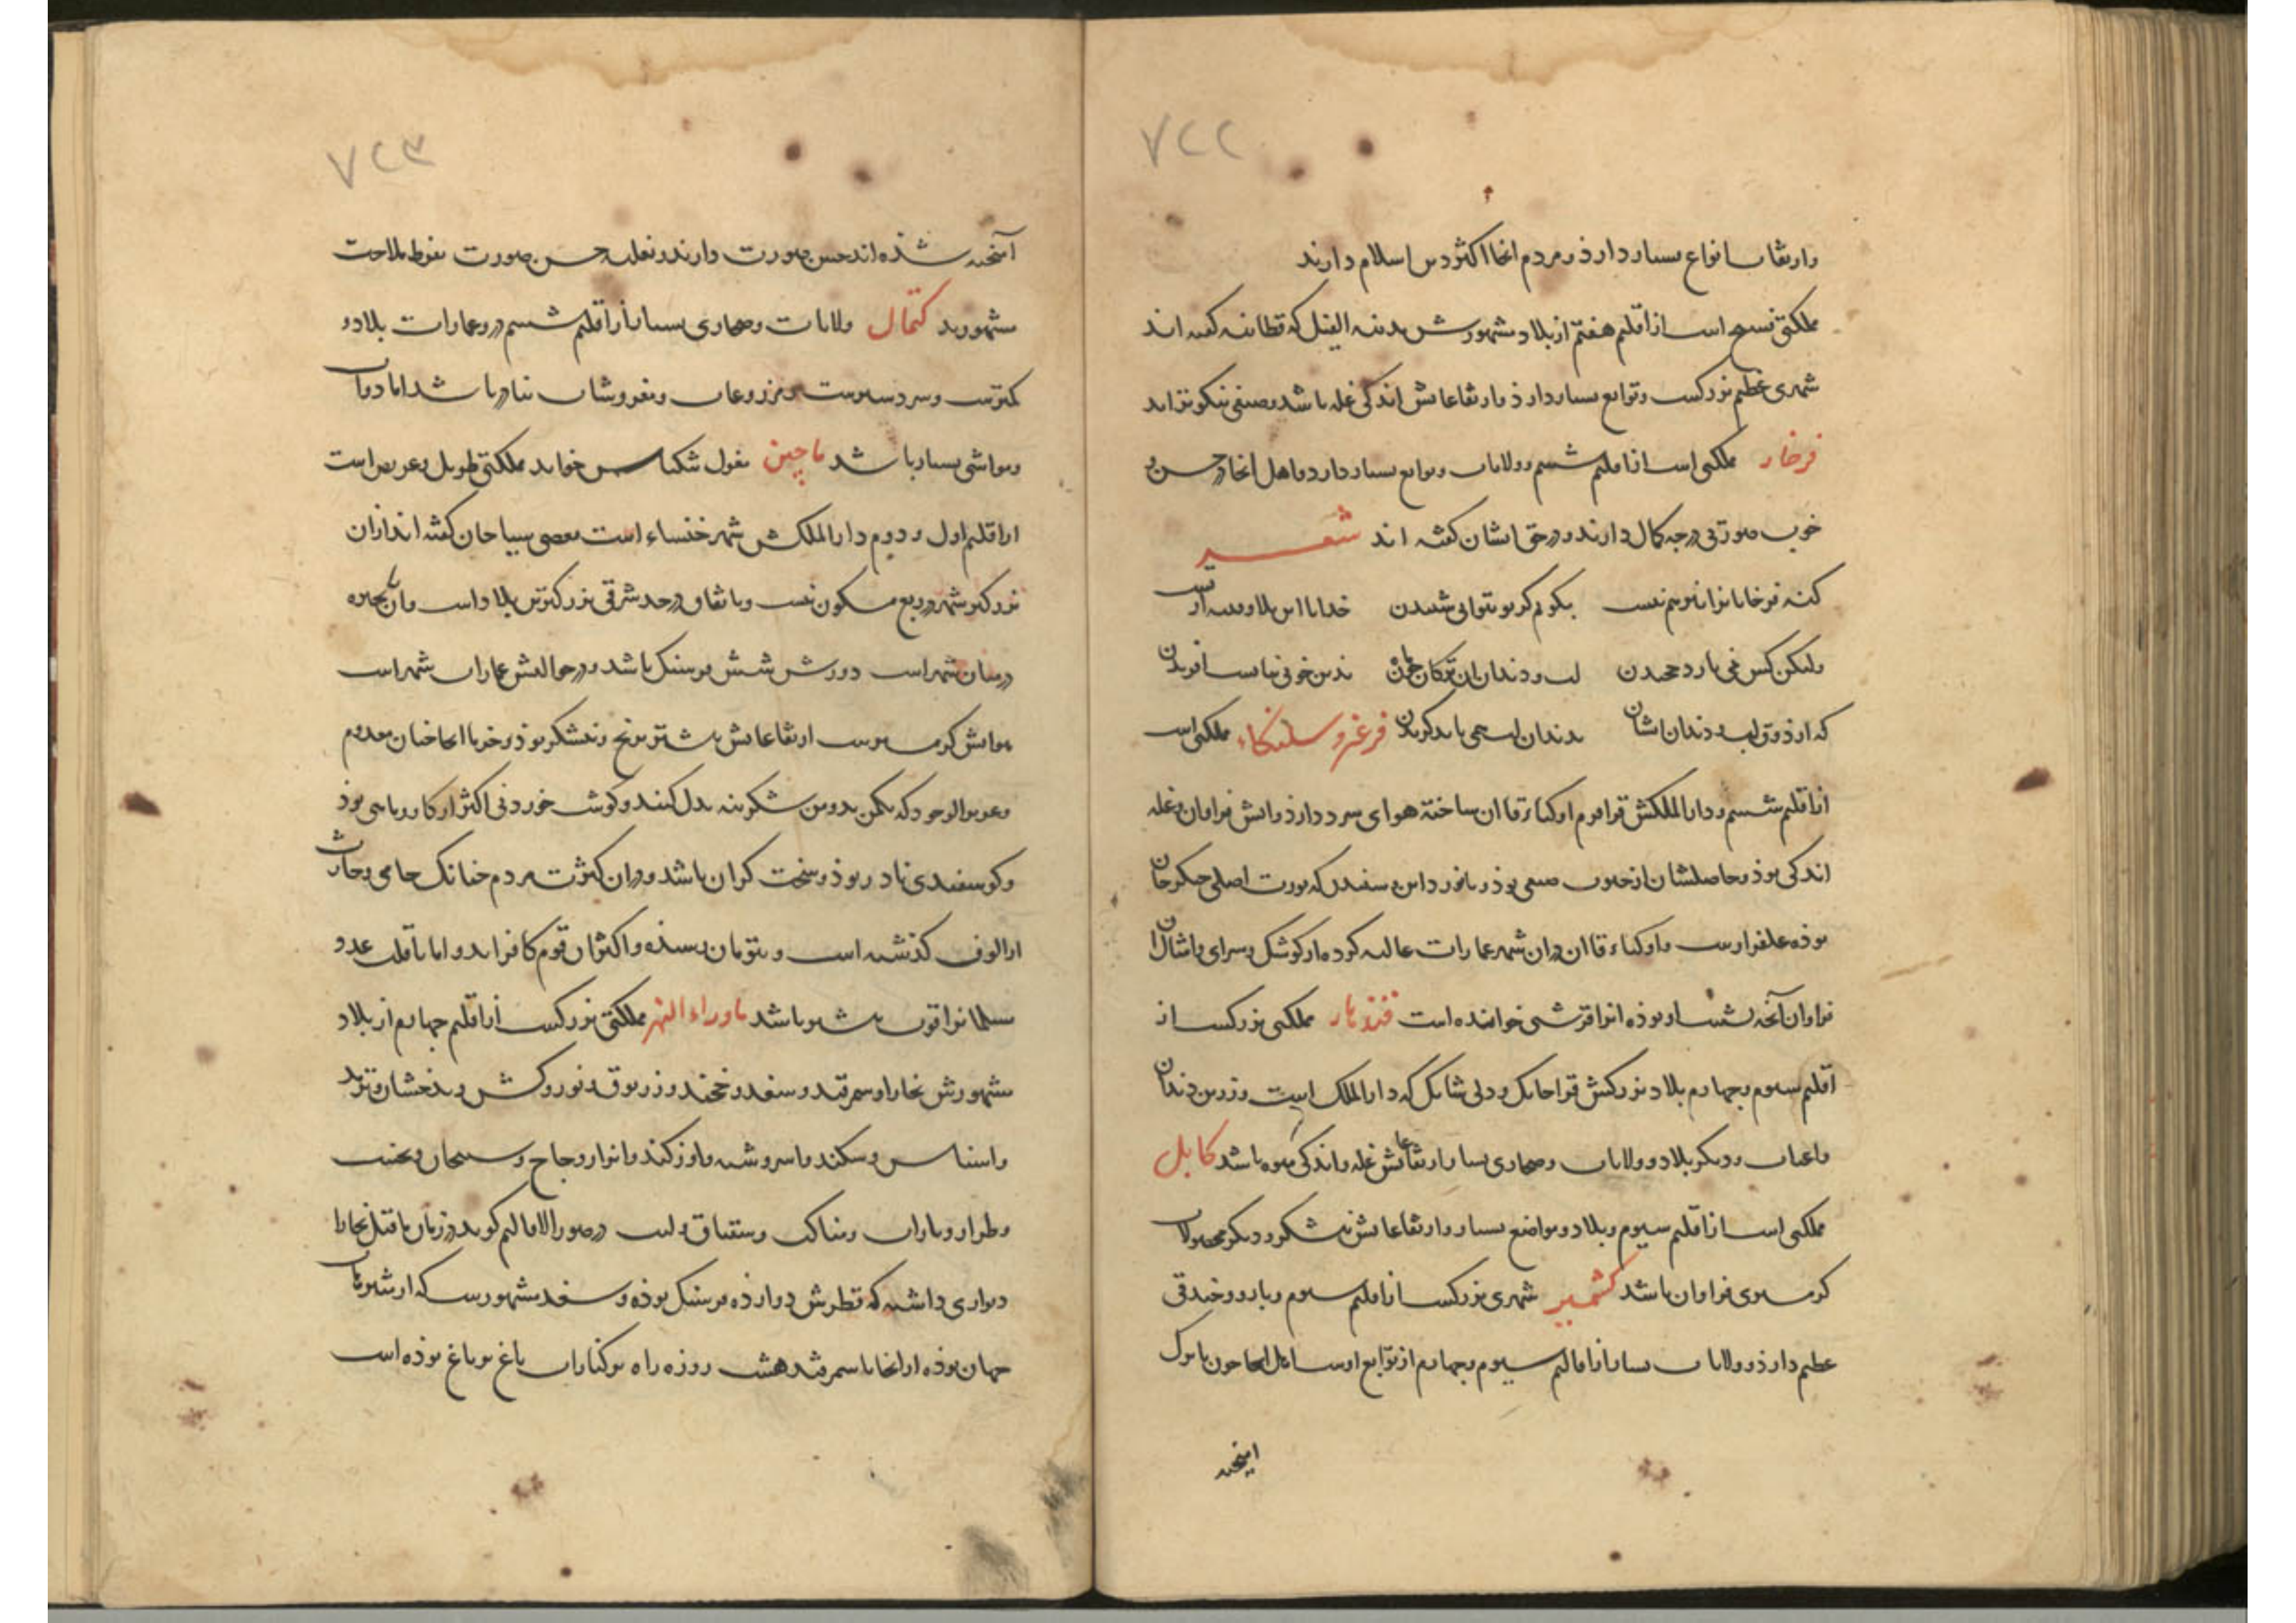 ۷۲۲
وارتفاعات انواع بسیار دارذ و مردم انجا اکثر دین اسلام دارند
مملکتی فسیح است از اقلیم هفتم از بلاد مشهورش مدینه الفیل که قطانیه گفته اند
شهری عظیم بزرگست و توابع بسیار دارذ وارتفاعاتش اندکی غله باشد وصیفی نیکوتر اید
فرخار مملکتی است از اقلیم ششم وولایات وتوابع بسیار دارد واهل انجا در حسن و
خوب صورتی درجه کمال دارند و در حق ایشان گفته اند شعر
گنه فرخاریانرا نیز هم نیست بگویم گر تو بتوانی شنیدن خدایا این بلا وفتنه از تست
ولیکن کس نمی یارد چخیدن لب و دندان ان ترکان چون ماه بدین خوبی نبایست افریدن
که از ذوق لب و دندان ایشان بدندان لب همی باید گزیدن فرغر وسلنکاء مملکتی است
از اقلیم ششم و دار الملکش قراقرم اوکتاء قاآن ساخته هوای سرد دارذ وآبش فراوان وغله
اندکی بوذ وحاصلشان از حبوب صیفی بوذ و
بوذه علفزارست واوکتاء قاآن دران شهر عمارات عالیه کرده از کوشک وسرای وامثال ان
فراوان آنچه نشست او بوذه انرا قرشی خوانده است قندهار مملکتی بزرگست از
اقلیم سیوم وچهارم بلاد بزرگش قراجانک ودلی شانک که دار الملک است وزردین دندان
واعتاب ودیگر بلاد وولایات وصحاری بسیار وارتفاعاتش غله واندکی میوه باشد کابل
مملکتی است از اقلیم سیوم وبلاد ومواضع بسیار وارتفاعاتش نیشکر ودیگر محصولات
گرمسیری فراوان باشد کشمیر شهری بزرگست از اقلیم سیوم وبارو وخندقی
عظیم دارذ وولایات بسیار از اقالیم سیوم وچهارم از توابع اوست اهل انجا چون با ترک
امیخته
۷۲۳
آمیخته شذه اند حسن صورت دارند و بغلبه حسن صورت بفرط ملاحت
مشهورند کتمال ولایات وصحاری بسیار از اقلیم ششم درو عمارات بلاد و
کمترست وسردسیرست ومزروعات ومغروشات نادر باشد اما دواب
ومواشی بسیار باشد ماچین مغول ننکیاس خوانند مملکتی طویل وعریض است
از اقلیم اول و دوم دار الملکش شهر خنساء است بعضی سیاحان گفته اند ازان
بزرگتر شهر در ربع مسکون نیست وباتفاق در حد شرقی بزرگترین بلاد است ودران بحیره
درمیان شهر است دورش شش فرسنگ باشد و در حوالیش عمارات شهر است
هوایش گرمسیرست ارتفاعاتش بیشتر برنج ونیشکر بوذ وخرما انجا چنان معدوم
وعزیز الوجود که یکمن بدو من شکر بنه بدل کنند وگوشت خوردنی اکثر از گاو وماهی بوذ
وگوسفندی نادر بوذ وسخت گران باشد ودران کثرت مردم چنانک حامی وحارث
از الوف گذشته است وبتومان رسیذه واکثر ان قوم کافر اند واما با قلت عدد
مسلمانرا قوت بیشتر باشد ماوراء النهر مملکتی بزرگست از اقلیم چهارم از بلاد
مشهورش بخارا وسمرقند وسغد وخجند و وکش وبدخشان وترمد
واسروشنه واوزکند واترار وجاج
وطرار وباراب وبناکت در صور الاقالیم گوید در زمان ماقبل بخارا
دیواری داشته که قطرش دوازده فرسنگ بوذه وسغد مشهورست که از نزهت
جهان بوذه از انجا تا سمرقند هشت روزه راه بر کنار اب باغ بر باغ بوذه است